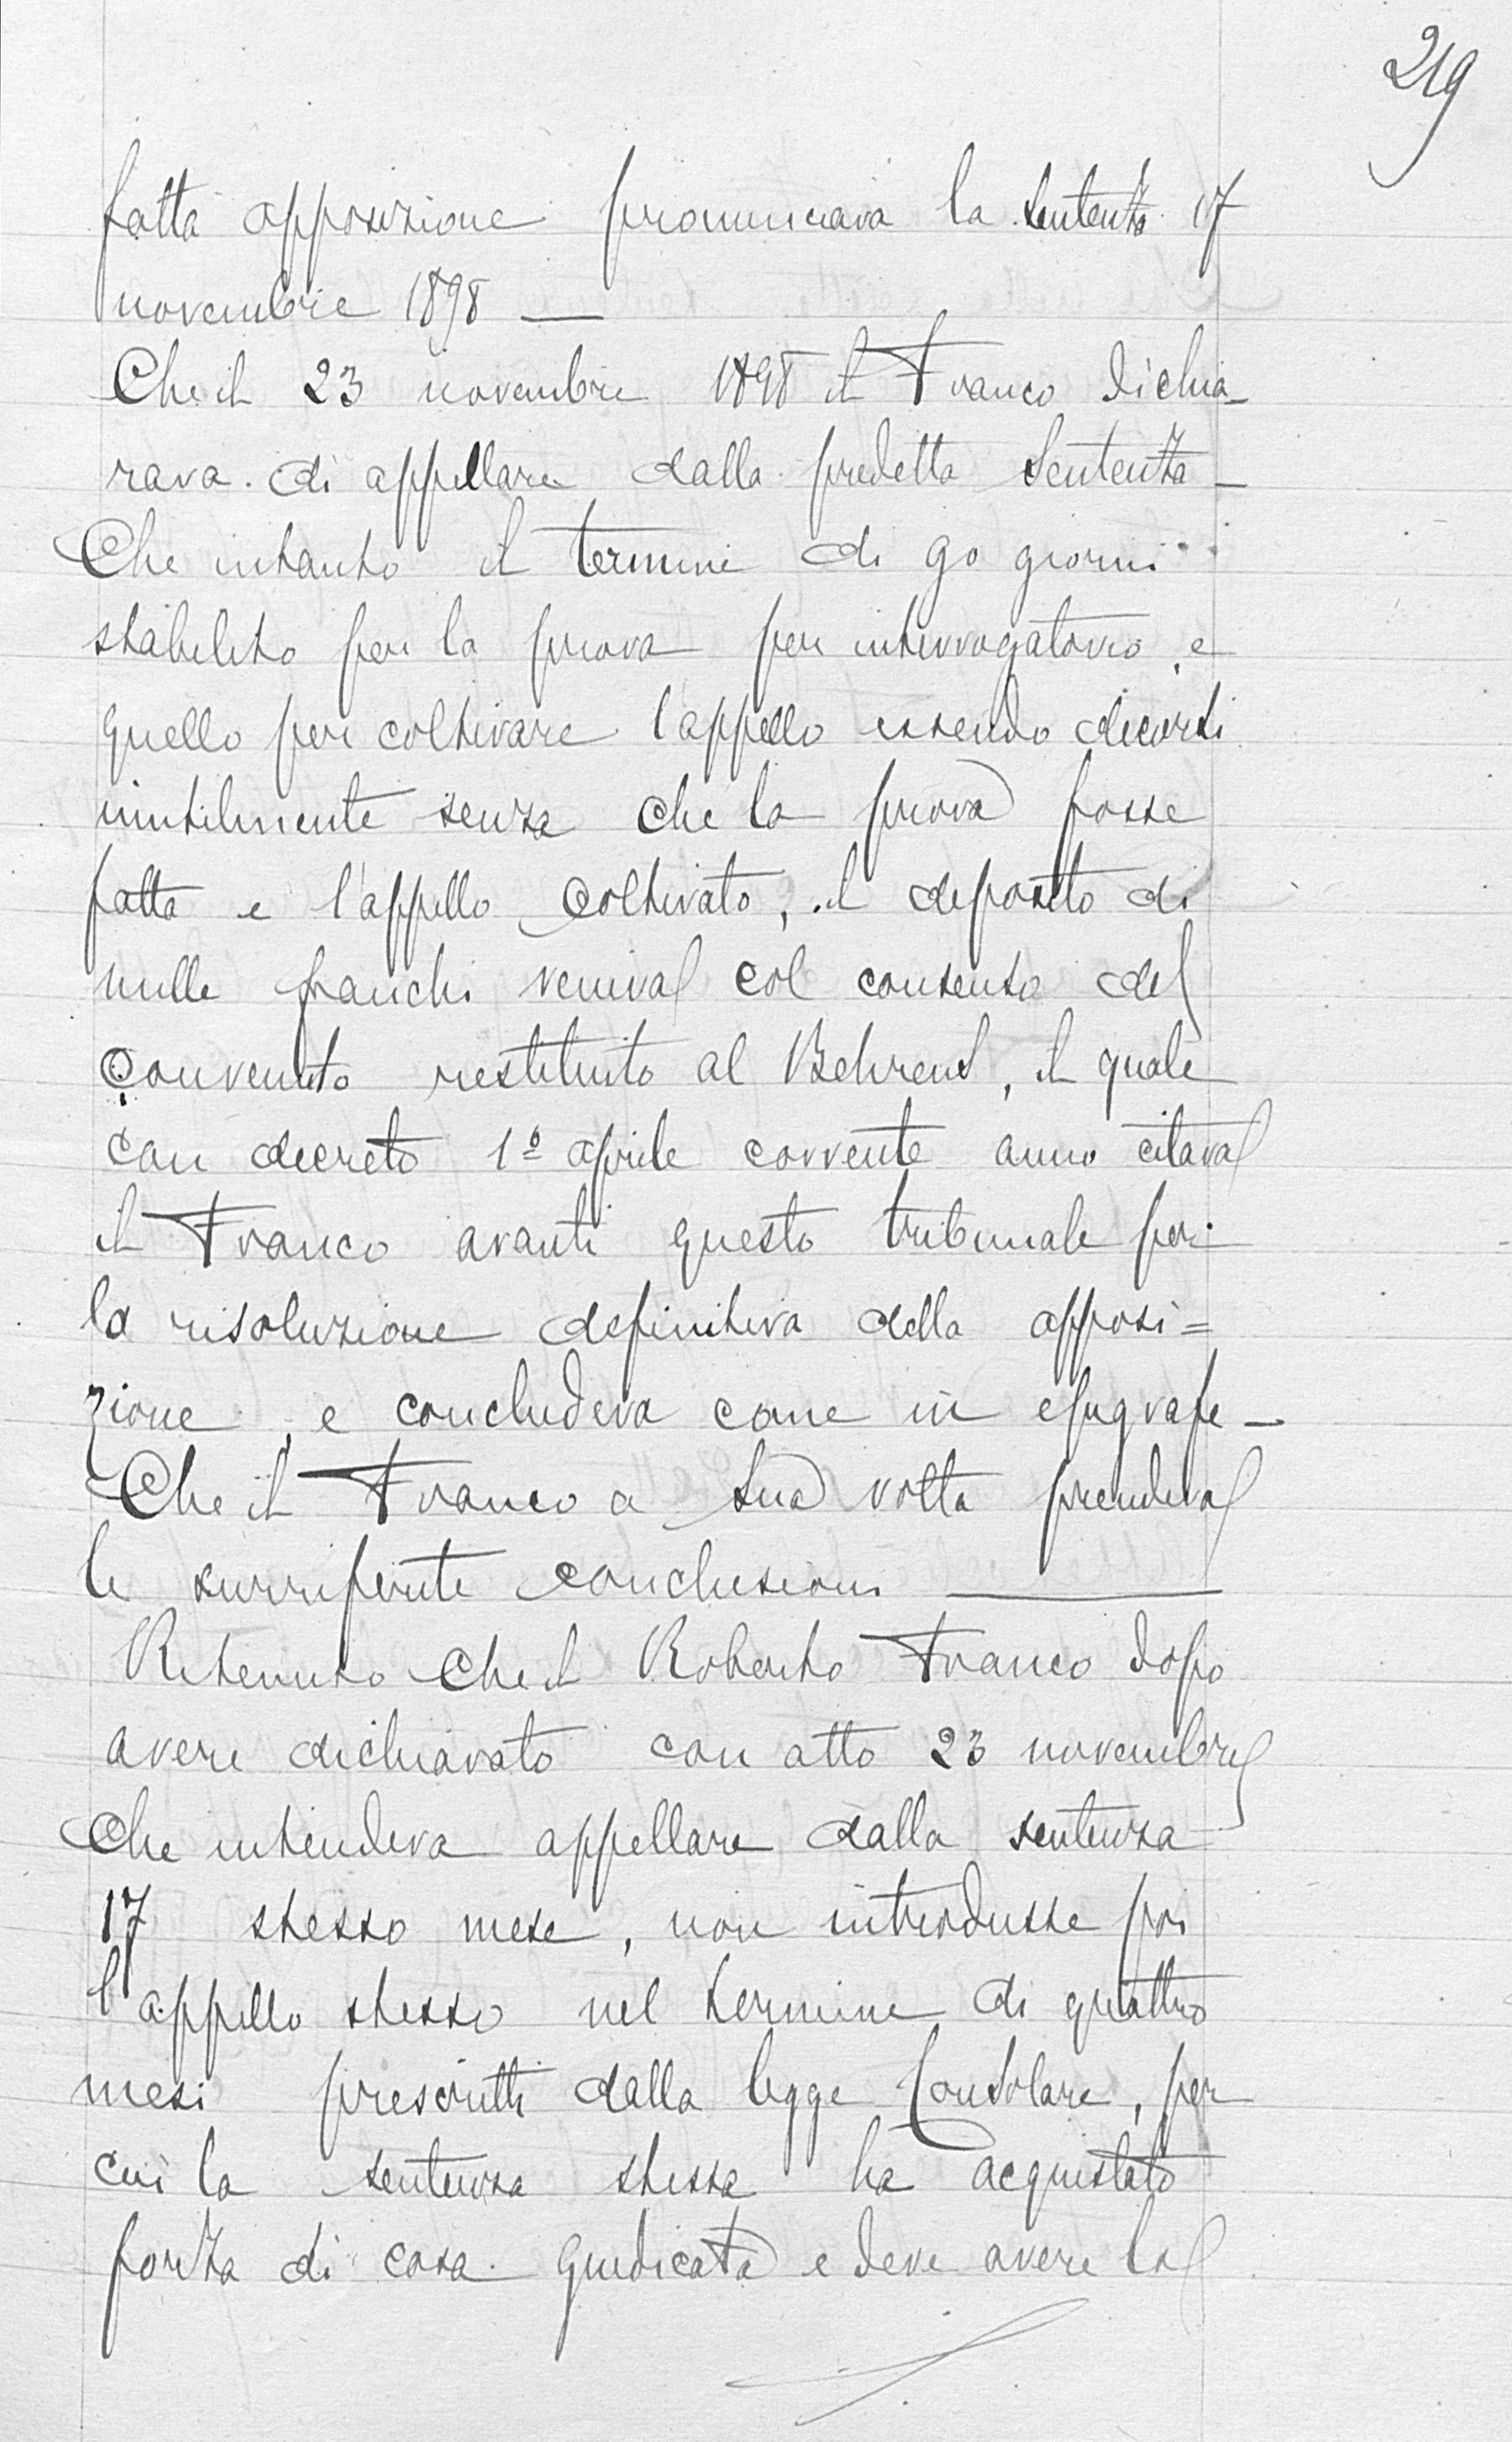 219
fatta opposizione pronunciava la Sentenza 17
novembre 1898 —
Che il 23 novembre 1898 il Franco dichia-
rava di appellare dalla predetta Sentenza -
Che intanto il termine di 90 giorni
stabilito per la prova per interrogatorio, e
quello per coltivare l'appello essendo decorsi
inutilmente senza che la prova fosse
fatta e l'appello coltivato, il deposito di
mille franchi veniva col consenso del
Convenuto restituito al Behrend, il quale
con decreto 1º aprile corrente anno citava
il Franco avanti questo tribunale per
la risoluzione definitiva della opposi=
zione, e concludeva come in epigrafe -
Che il Franco a sua volta prendeva
le surriferite conclusioni —
Ritenuto che il Roberto Franco dopo
avere dichiarato con atto 23 novembre
che intendeva appellare dalla sentenza
17 stesso mese, non introdusse poi
l'appello stesso nel termine di quattro
mesi prescritti dalla legge Consolare, per
cui la sentenza stessa ha acquistato
forza di cosa giudicata e deve avere la